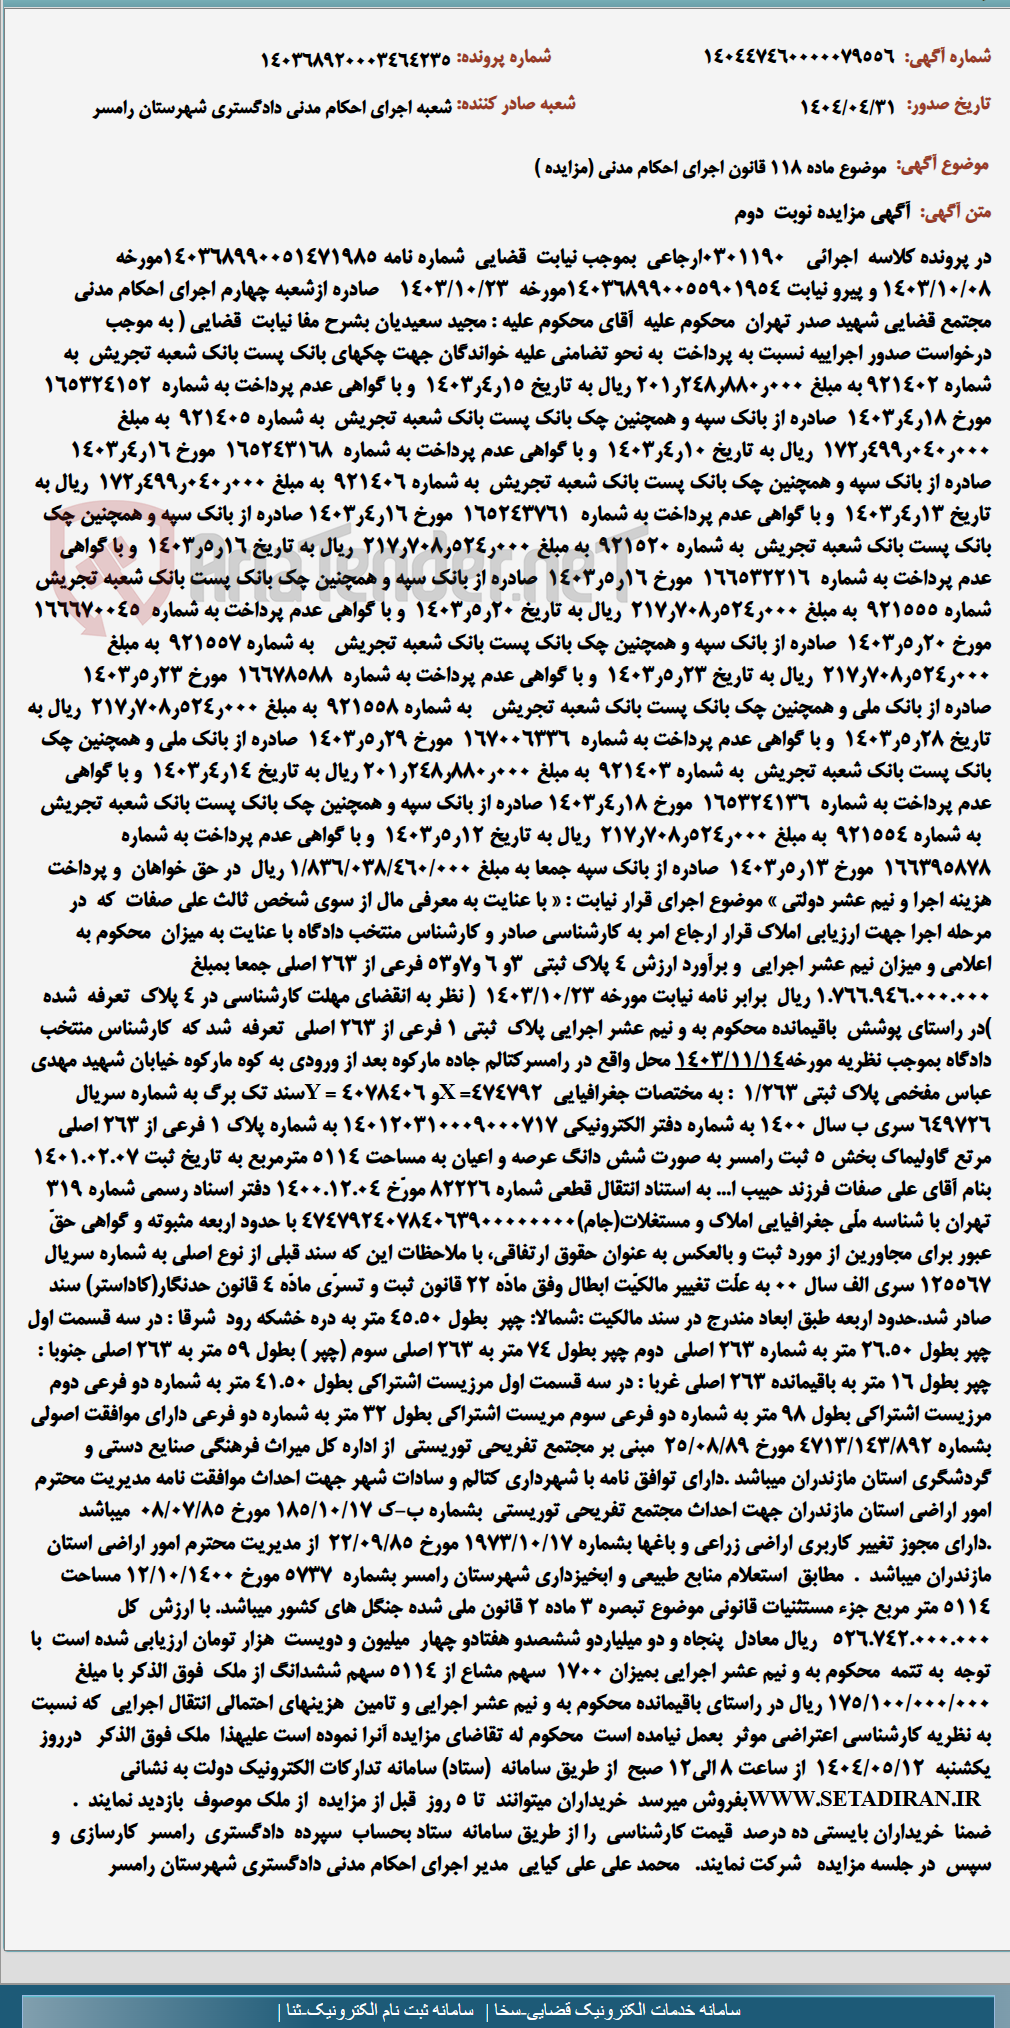 شماره آگهی: ۱۴۰۴۴۷۴۶۰۰۰۰۰۷۹۵۵۶ شماره پرونده: ۱۴۰۳۶۸۹۲۰۰۰۳۴۶۴۲۳۵
تاریخ صدور: ۱۴۰۴/۰۴/۳۱ شعبه صادر کننده: شعبه اجرای احکام مدنی دادگستری شهرستان رامسر
موضوع آگهی: موضوع ماده ۱۱۸ قانون اجرای احکام مدنی (مزایده )
متن آگهی: آگهی مزایده نوبت دوم
در پرونده کلاسه اجرائی ۰۳۰۱۱۹۰ارجاعی بموجب نیابت قضایی شماره نامه ۱۴۰۳۶۸۹۹۰۰۵۱۴۷۱۹۸۵مورخه
۱۴۰۳/۱۰/۰۸ و پیرو نیابت ۱۴۰۳۶۸۹۹۰۰۵۵۹۰۱۹۵۴مورخه ۱۴۰۳/۱۰/۲۳ صادره ازشعبه چهارم اجرای احکام مدنی
مجتمع قضایی شهید صدر تهران محکوم علیه آقای محکوم علیه : مجید سعیدیان بشرح مفا نیابت قضایی ( به موجب
درخواست صدور اجراییه نسبت به پرداخت به نحو تضامنی علیه خواندگان جهت چکهای بانک پست بانک شعبه تجریش به
شماره ۹۲۱۴۰۲ به مبلغ ۲۰۱٫۲۴۸٫۸۸۰٫۰۰۰ ریال به تاریخ ۱۵ر۴ر۱۴۰۳ و با گواهی عدم پرداخت به شماره ۱۶۵۳۲۴۱۵۲
مورخ ۱۸ر۴ر۱۴۰۳ صادره از بانک سپه و همچنین چک بانک پست بانک شعبه تجریش به شماره ۹۲۱۴۰۵ به مبلغ
۱۷۲٫۴۹۹٫۰۴۰٫۰۰۰ ریال به تاریخ ۱۰ر۴ر۱۴۰۳ و با گواهی عدم پرداخت به شماره ۱۶۵۲۴۳۱۶۸ مورخ ۱۶ر۴ر۱۴۰۳
صادره از بانک سپه و همچنین چک بانک پست بانک شعبه تجریش به شماره ۹۲۱۴۰۶ به مبلغ ۱۷۲٫۴۹۹٫۰۴۰٫۰۰۰ ریال به
تاریخ ۱۳ر۴ر۱۴۰۳ و با گواهی عدم پرداخت به شماره ۱۶۵۲۴۳۷۶۱ مورخ ۱۶ر۴ر۱۴۰۳ صادره از بانک سپه و همچنین چک
بانک پست بانک شعبه تجریش به شماره ۹۲۱۵۲۰ به مبلغ ۲۱۷٫۷۰۸٫۵۲۴٫۰۰۰ ریال به تاریخ ۱۶ر۵ر۱۴۰۳ و با گواهی
عدم پرداخت به شماره ۱۶۶۵۳۲۲۱۶ مورخ ۱۶ر۵ر۱۴۰۳ صادره از بانک سپه و همچنین چک بانک پست بانک شعبه تجریش
شماره ۹۲۱۵۵۵ به مبلغ ۲۱۷٫۷۰۸٫۵۲۴٫۰۰۰ ریال به تاریخ ۲۰ر۵ر۱۴۰۳ و با گواهی عدم پرداخت به شماره ۱۶۶۶۷۰۰۴۵
مورخ ۲۰ر۵ر۱۴۰۳ صادره از بانک سپه و همچنین چک بانک پست بانک شعبه تجریش به شماره ۹۲۱۵۵۷ به مبلغ
۲۱۷٫۷۰۸٫۵۲۴٫۰۰۰ ریال به تاریخ ۲۳ر۵ر۱۴۰۳ و با گواهی عدم پرداخت به شماره ۱۶۶۷۸۵۸۸ مورخ ۲۳ر۵ر۱۴۰۳
صادره از بانک ملی و همچنین چک بانک پست بانک شعبه تجریش به شماره ۹۲۱۵۵۸ به مبلغ ۲۱۷٫۷۰۸٫۵۲۴٫۰۰۰ ریال به
تاریخ ۲۸ر۵ر۱۴۰۳ و با گواهی عدم پرداخت به شماره ۱۶۷۰۰۶۳۳۶ مورخ ۲۹ر۵ر۱۴۰۳ صادره از بانک ملی و همچنین چک
بانک پست بانک شعبه تجریش به شماره ۹۲۱۴۰۳ به مبلغ ۲۰۱٫۲۴۸٫۸۸۰٫۰۰۰ ریال به تاریخ ۱۴ر۴ر۱۴۰۳ و با گواهی
عدم پرداخت به شماره ۱۶۵۳۲۴۱۳۶ مورخ ۱۸ر۴ر۱۴۰۳ صادره از بانک سپه و همچنین چک بانک پست بانک شعبه تجریش
به شماره ۹۲۱۵۵۴ به مبلغ ۲۱۷٫۷۰۸٫۵۲۴٫۰۰۰ ریال به تاریخ ۱۲ر۵ر۱۴۰۳ و با گواهی عدم پرداخت به شماره
۱۶۶۳۹۵۸۷۸ مورخ ۱۳ر۵ر۱۴۰۳ صادره از بانک سپه جمعا به مبلغ ۱/۸۳۶/۰۳۸/۴۶۰/۰۰۰ ریال در حق خواهان و پرداخت
هزینه اجرا و نیم عشر دولتی » موضوع اجرای قرار نیابت : « با عنایت به معرفی مال از سوی شخص ثالث علی صفات که در
مرحله اجرا جهت ارزیابی املاک قرار ارجاع امر به کارشناسی صادر و کارشناس منتخب دادگاه با عنایت به میزان محکوم به
اعلامی و میزان نیم عشر اجرایی و برآورد ارزش ۴ پلاک ثبتی ۳و ۶ و۷و۵۳ فرعی از ۲۶۳ اصلی جمعا بمبلغ
۱.۷۶۶.۹۴۶.۰۰۰.۰۰۰ ریال برابر نامه نیابت مورخه ۱۴۰۳/۱۰/۲۳ ( نظر به انقضای مهلت کارشناسی در ۴ پلاک تعرفه شده
)در راستای پوشش باقیمانده محکوم به و نیم عشر اجرایی پلاک ثبتی ۱ فرعی از ۲۶۳ اصلی تعرفه شد که کارشناس منتخب
دادگاه بموجب نظریه مورخه۱۴۰۳/۱۱/۱۴ محل واقع در رامسرکتالم جاده مارکوه بعد از ورودی به کوه مارکوه خیابان شهید مهدی
عباس مفخمی پلاک ثبتی ۱/۲۶۳ : به مختصات جغرافیایی X =۴۷۴۷۹۲و Y = ۴۰۷۸۴۰۶سند تک برگ به شماره سریال
۶۴۹۷۲۶ سری ب سال ۱۴۰۰ به شماره دفتر الکترونیکی ۱۴۰۱۲۰۳۱۰۰۰۹۰۰۰۷۱۷ به شماره پلاک ۱ فرعی از ۲۶۳ اصلی
مرتع گاولیماک بخش ۵ ثبت رامسر به صورت شش دانگ عرصه و اعیان به مساحت ۵۱۱۴ مترمربع به تاریخ ثبت ۱۴۰۱.۰۲.۰۷
بنام آقای علی صفات فرزند حبیب ا... به استناد انتقال قطعی شماره ۸۲۲۲۶ مورّخ ۱۴۰۰.۱۲.۰۴ دفتر اسناد رسمی شماره ۳۱۹
تهران با شناسه ملّی جغرافیایی املاک و مستغلات(جام)۴۷۴۷۹۲۴۰۷۸۴۰۶۳۹۰۰۰۰۰۰۰۰ با حدود اربعه مثبوته و گواهی حقّ
عبور برای مجاورین از مورد ثبت و بالعکس به عنوان حقوق ارتفاقی، با ملاحظات این که سند قبلی از نوع اصلی به شماره سریال
۱۲۵۵۶۷ سری الف سال ۰۰ به علّت تغییر مالکیّت ابطال وفق مادّه ۲۲ قانون ثبت و تسرّی مادّه ۴ قانون حدنگار(کاداستر) سند
صادر شد.حدود اربعه طبق ابعاد مندرج در سند مالکیت :شمالا: چپر بطول ۴۵.۵۰ متر به دره خشکه رود شرقا : در سه قسمت اول
چپر بطول ۲۶.۵۰ متر به شماره ۲۶۳ اصلی دوم چپر بطول ۷۴ متر به ۲۶۳ اصلی سوم (چپر ) بطول ۵۹ متر به ۲۶۳ اصلی جنوبا :
چپر بطول ۱۶ متر به باقیمانده ۲۶۳ اصلی غربا : در سه قسمت اول مرزیست اشتراکی بطول ۴۱.۵۰ متر به شماره دو فرعی دوم
مرزیست اشتراکی بطول ۹۸ متر به شماره دو فرعی سوم مریست اشتراکی بطول ۳۲ متر به شماره دو فرعی دارای موافقت اصولی
بشماره ۴۷۱۳/۱۴۳/۸۹۲ مورخ ۲۵/۰۸/۸۹ مبنی بر مجتمع تفریحی توریستی از اداره کل میراث فرهنگی صنایع دستی و
گردشگری استان مازندران میباشد .دارای توافق نامه با شهرداری کتالم و سادات شهر جهت احداث موافقت نامه مدیریت محترم
امور اراضی استان مازندران جهت احداث مجتمع تفریحی توریستی بشماره ب-ک ۱۸۵/۱۰/۱۷ مورخ ۰۸/۰۷/۸۵ میباشد
.دارای مجوز تغییر کاربری اراضی زراعی و باغها بشماره ۱۹۷۳/۱۰/۱۷ مورخ ۲۲/۰۹/۸۵ از مدیریت محترم امور اراضی استان
مازندران میباشد . مطابق استعلام منابع طبیعی و ابخیزداری شهرستان رامسر بشماره ۵۷۳۷ مورخ ۱۲/۱۰/۱۴۰۰ مساحت
۵۱۱۴ متر مربع جزء مستثنیات قانونی موضوع تبصره ۳ ماده ۲ قانون ملی شده جنگل های کشور میباشد. با ارزش کل
۵۲۶.۷۴۲.۰۰۰.۰۰۰ ریال معادل پنجاه و دو میلیاردو ششصدو هفتادو چهار میلیون و دویست هزار تومان ارزیابی شده است با
توجه به تتمه محکوم به و نیم عشر اجرایی بمیزان ۱۷۰۰ سهم مشاع از ۵۱۱۴ سهم ششدانگ از ملک فوق الذکر با مبلغ
۱۷۵/۱۰۰/۰۰۰/۰۰۰ ریال در راستای باقیمانده محکوم به و نیم عشر اجرایی و تامین هزینهای احتمالی انتقال اجرایی که نسبت
به نظریه کارشناسی اعتراضی موثر بعمل نیامده است محکوم له تقاضای مزایده آنرا نموده است علیهذا ملک فوق الذکر درروز
یکشنبه ۱۴۰۴/۰۵/۱۲ از ساعت ۸ الی۱۲ صبح از طریق سامانه (ستاد) سامانه تدارکات الکترونیک دولت به نشانی
WWW.SETADIRAN.IRبفروش میرسد خریداران میتوانند تا ۵ روز قبل از مزایده از ملک موصوف بازدید نمایند .
ضمنا خریداران بایستی ده درصد قیمت کارشناسی را از طریق سامانه ستاد بحساب سپرده دادگستری رامسر کارسازی و
سپس در جلسه مزایده شرکت نمایند. محمد علی علی کیایی مدیر اجرای احکام مدنی دادگستری شهرستان رامسر
AriaTender.neT
سامانه خدمات الکترونیک قضایی-سخا | سامانه ثبت نام الکترونیک-ثنا |